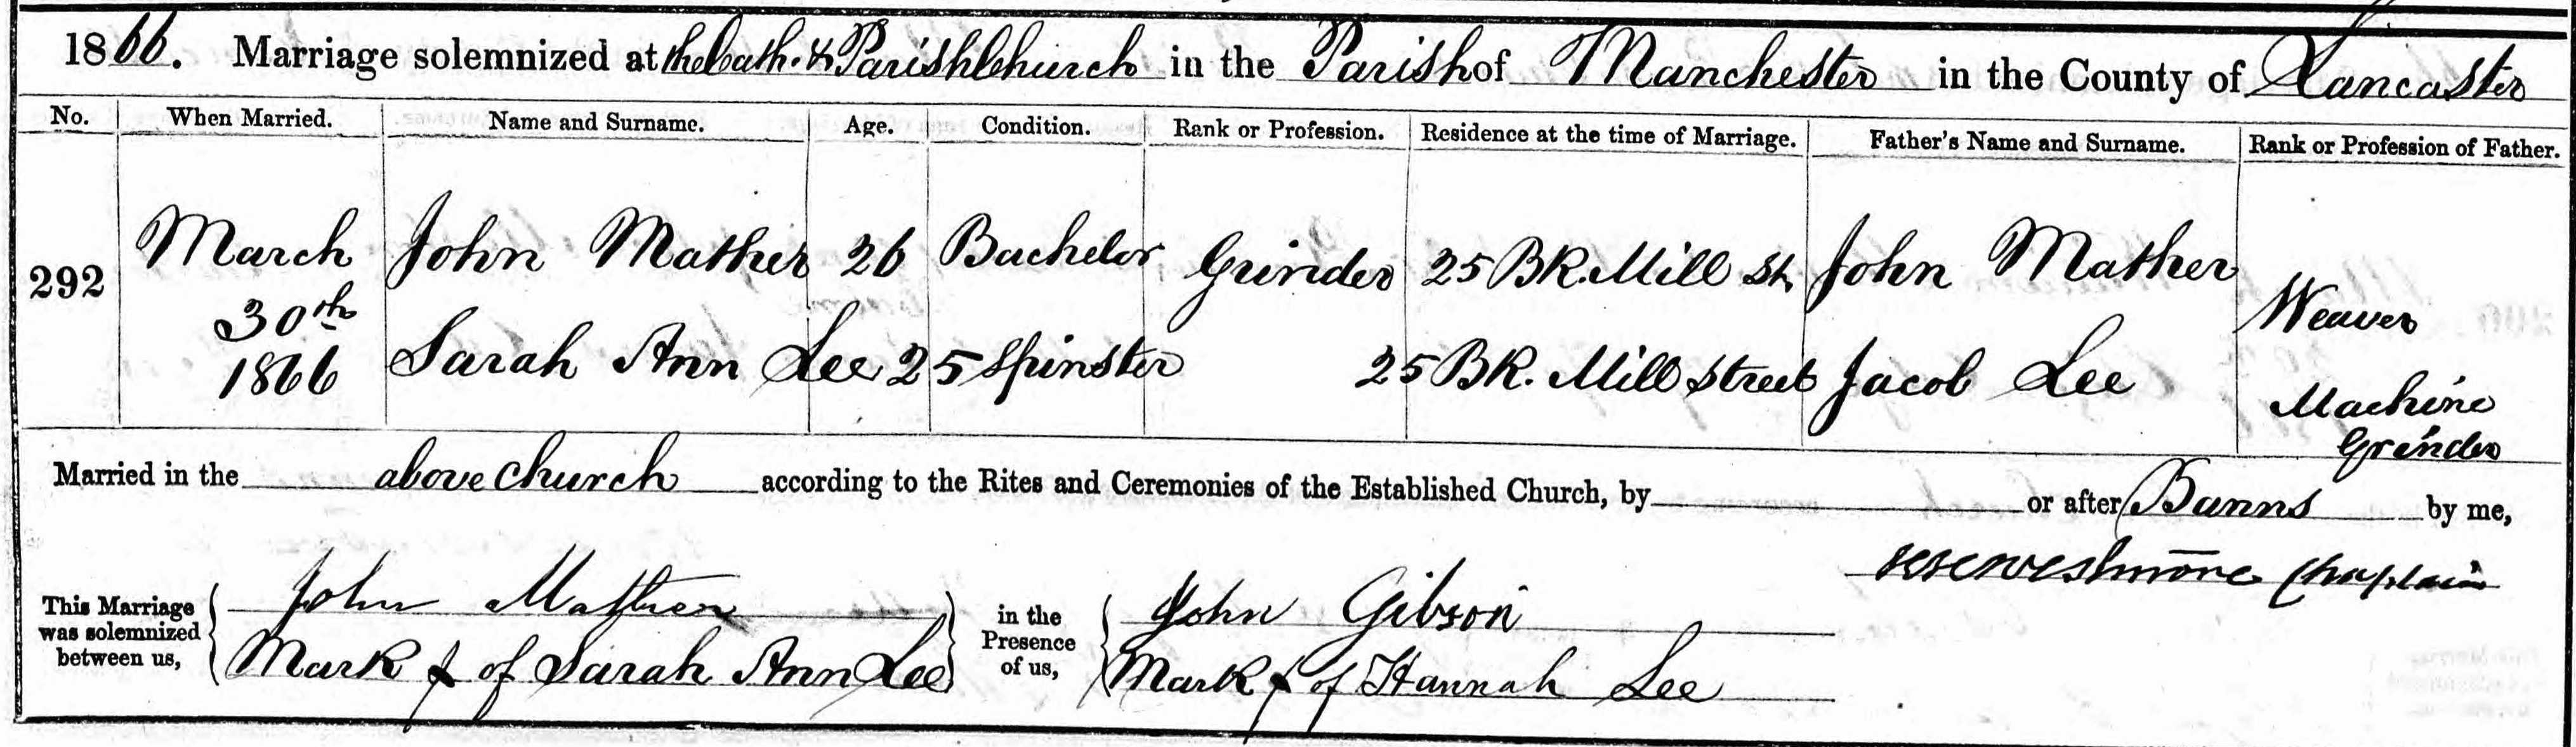 1866. Marriage solemnized at the Cath. & Parish Church in the Parish of Manchester in the County of Lancaster
No. When Married. Name and Surname. Age. Condition. Rank or Profession. Residence at the time of Marriage. Father's Name and Surname. Rank or Profession of Father.
292 March 30th 1866 John Mather 26 Bachelor Grinder 25 BK. Mill St. John Mather Weaver
Sarah Ann Lee 25 Spinster 25 BK. Mill Street Jacob Lee Machine Grinder
Married in the above Church according to the Rites and Ceremonies of the Established Church, by or after Banns by me,
Chaplain
This Marriage was solemnized between us, John Mather in the Presence of us, John Gibson
Mark X of Sarah Ann Lee Mark X of Hannah Lee